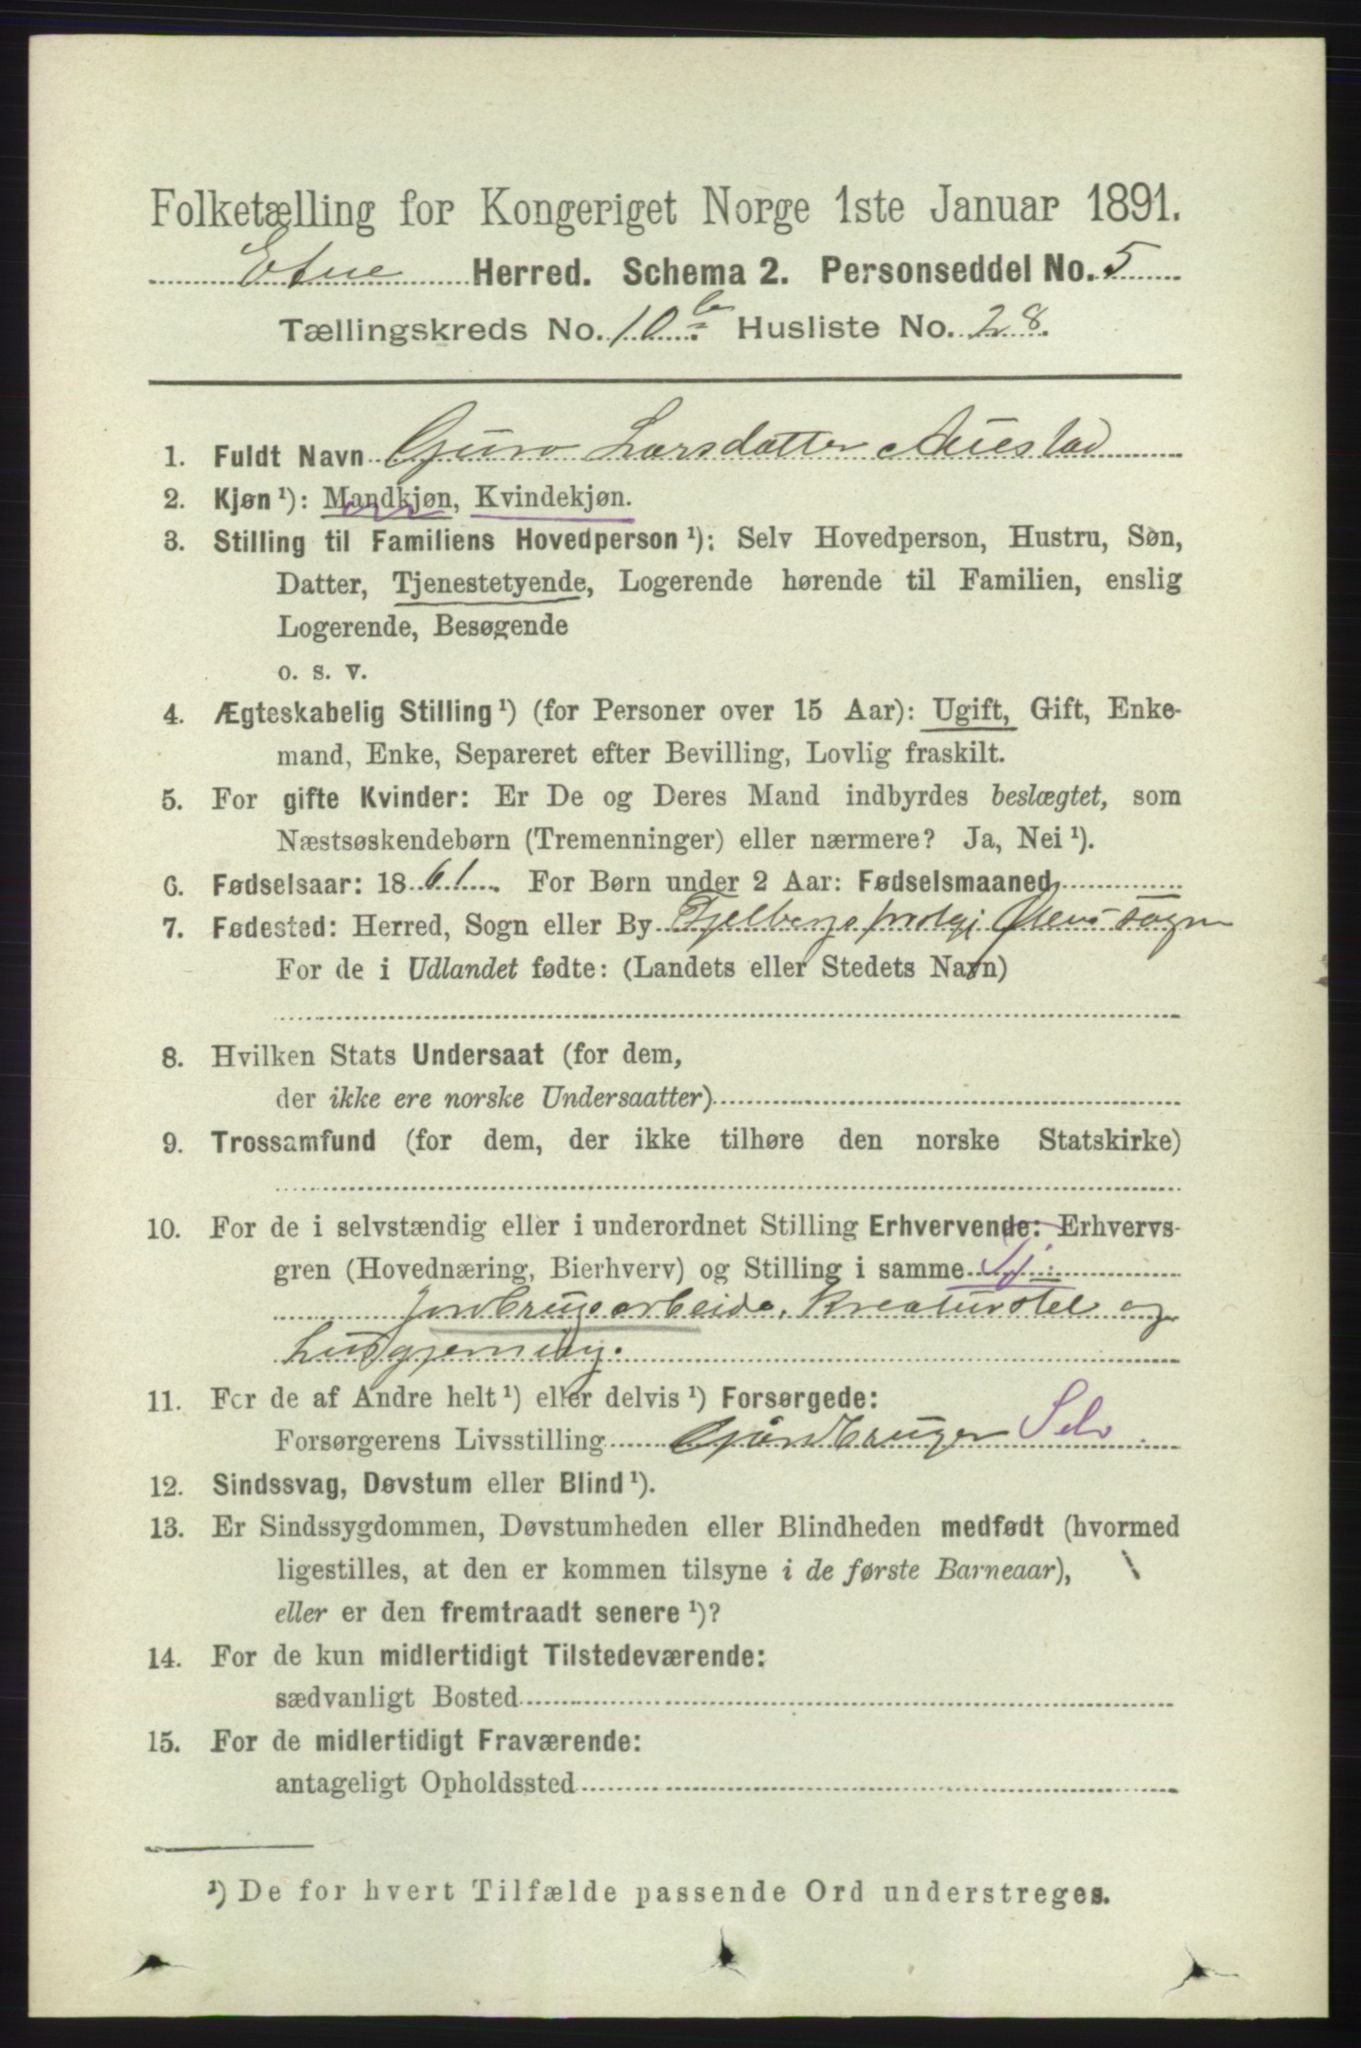 Folketælling for Kongeriget Norge 1ste Januar 1891.
Etne Herred. Schema 2. Personseddel No. 5
Tællingskreds No. 10 b Husliste No. 28.
1. Fuldt Navn Guro Larsdatter Auestad
2. Kjøn ¹): Mandkjøn, Kvindekjøn.
3. Stilling til Familiens Hovedperson ¹): Selv Hovedperson, Hustru, Søn,
Datter, Tjenestetyende, Logerende hørende til Familien, enslig
Logerende, Besøgende
o. s. v.
4. Ægteskabelig Stilling ¹) (for Personer over 15 Aar): Ugift, Gift, Enke-
mand, Enke, Separeret efter Bevilling, Lovlig fraskilt.
5. For gifte Kvinder: Er De og Deres Mand indbyrdes beslægtet, som
Næstsøskendebørn (Tremenninger) eller nærmere? Ja, Nei ¹).
6. Fødselsaar: 1861. For Børn under 2 Aar: Fødselsmaaned
7. Fødested: Herred, Sogn eller By Fjelbergs prstgj Ølens sogn
For de i Udlandet fødte: (Landets eller Stedets Navn)
8. Hvilken Stats Undersaat (for dem,
der ikke ere norske Undersaatter)
9. Trossamfund (for dem, der ikke tilhøre den norske Statskirke)
10. For de i selvstændig eller i underordnet Stilling Erhvervende: Erhvervs-
gren (Hovednæring, Bierhverv) og Stilling i samme Tj:
Jordbrugsarbeide, Kreaturstel og
husgjerning.
11. For de af Andre helt ¹) eller delvis ¹) Forsørgede:
Forsørgerens Livsstilling Gaardbruger Selv
12. Sindssvag, Døvstum eller Blind ¹).
13. Er Sindssygdommen, Døvstumheden eller Blindheden medfødt (hvormed
ligestilles, at den er kommen tilsyne i de første Barneaar),
eller er den fremtraadt senere ¹)?
14. For de kun midlertidigt Tilstedeværende:
sædvanligt Bosted
15. For de midlertidigt Fraværende:
antageligt Opholdssted
¹) De for hvert Tilfælde passende Ord understreges.